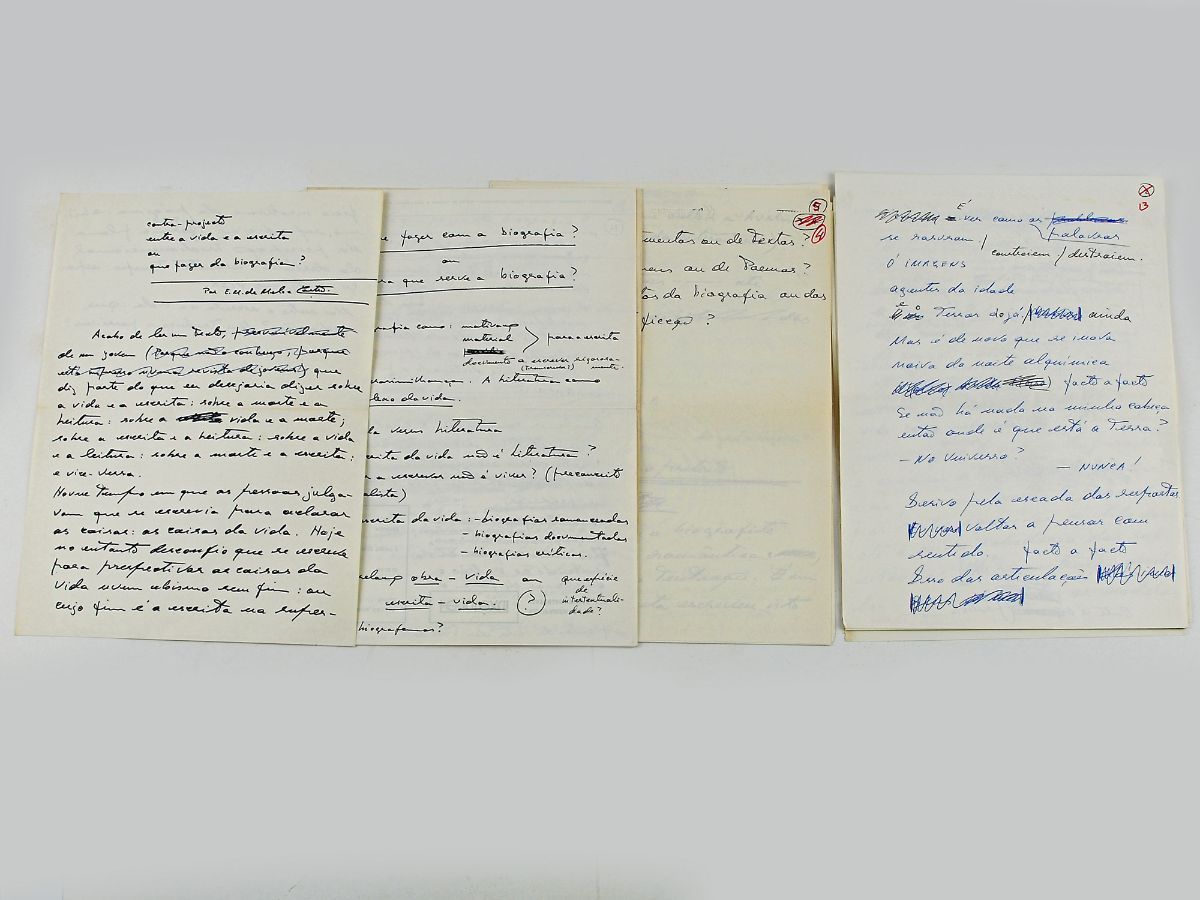 contra-projecto
entre a vida e a escrita
ou
que fazer da biografia?
Por E.M. de Melo e Castro
Acabo de ler um texto, possivelmente
de um jovem (porque não conheço, porque
está impresso numa revista de jovens) que
diz parte do que eu desejaria dizer sobre
a vida e a escrita: sobre a morte e a
leitura: sobre a vida e a morte;
sobre a escrita e a leitura: sobre a vida
e a leitura: sobre a morte e a escrita:
e vice-versa.
Houve tempo em que as pessoas julga-
vam que se escrevia para aclarar
as coisas: as coisas da vida. Hoje
no entanto desconfio que se escreve
para perspectivar as coisas da
vida num abismo sem fim: ou
cujo fim é a escrita na super-
e fazer com a biografia?
ou
ra que serve a biografia?
grafia como: motivação
material
para a escrita
documento a escrever rigorosa-
(transcrever) mente.
. A literatura como
da vida.
da versus Literatura
crita da vida não é literatura?
a escrever não é viver? (preconceito
alista)
escrita da vida: - biografias romanceadas
- biografias documentadas
- biografias críticas.
relação obra - vida ou que espécie
de
escrita - vida ? intertextuali-
dade?
biografamos?
5
4
mentos ou de Textos?
mens ou de Poemas?
tos da biografia ou das
ficção?
3
É ver como os problemas
palavras
se rasuram / constroiem / destroiem.
Ó IMAGENS
agentes da idade
Terras do já / ainda
Mas é de novo que se inova
noiva da noite alquímica
facto a facto
Se não há nada na minha cabeça
então onde é que está a Terra?
- No Universo?
- NUNCA!
Derivo pela escada das respostas
voltar a pensar com
sentido. facto a facto
Isso das articulações